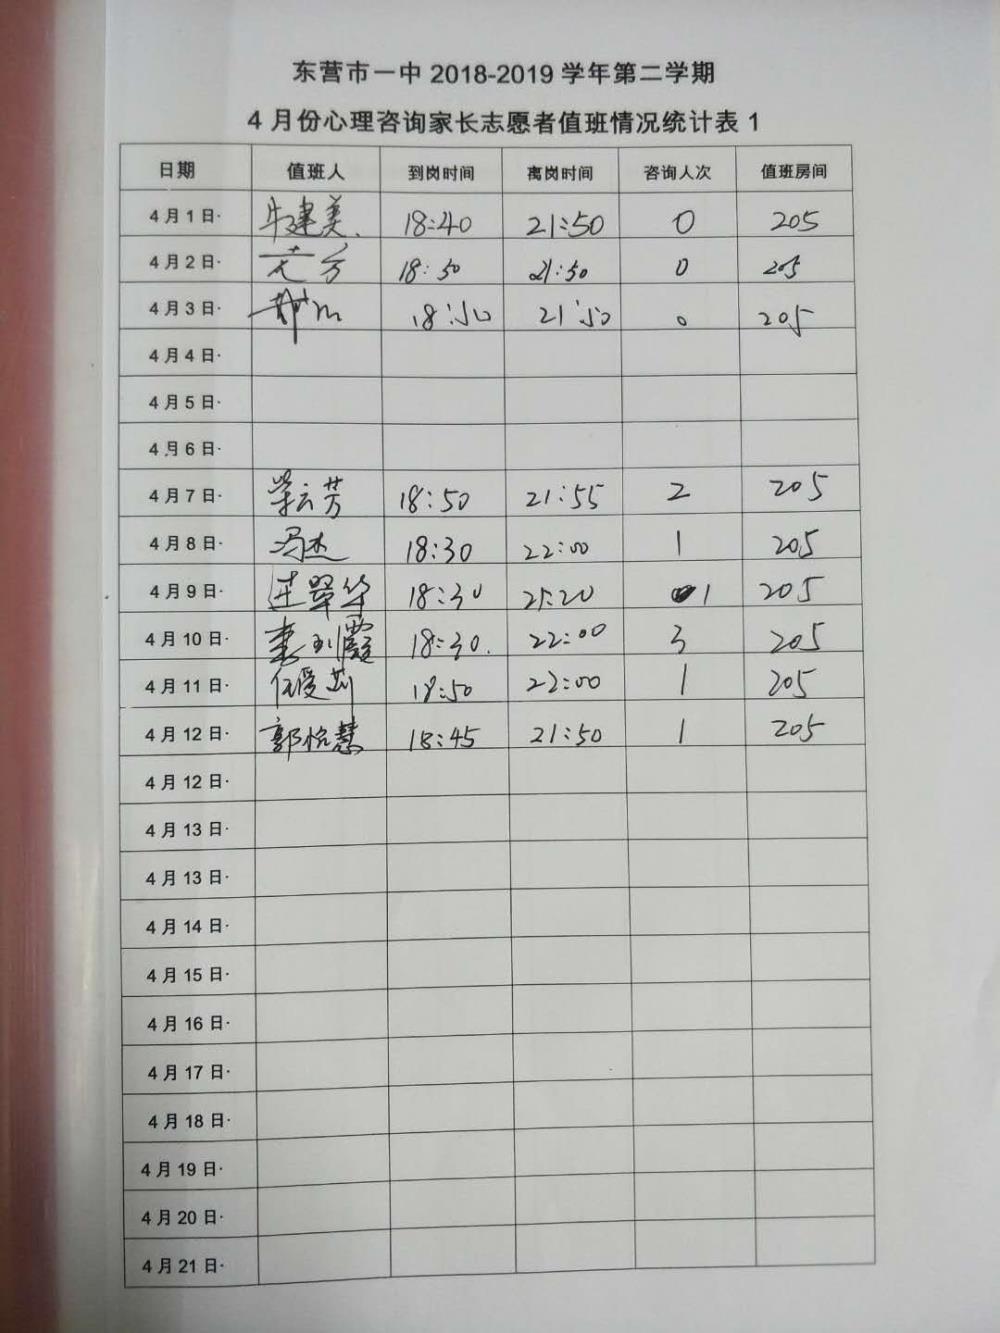 东营市一中 2018-2019 学年第二学期
4 月份心理咨询家长志愿者值班情况统计表 1
日期 值班人 到岗时间 离岗时间 咨询人次 值班房间
4 月 1 日· 牛建美. 18:40 21:50 0 205
4 月 2 日· 18:50 21:50 0 205
4 月 3 日· 18:50 21:50 0 205
4 月 4 日·
4 月 5 日·
4 月 6 日·
4 月 7 日· 荣云芳 18:50 21:55 2 205
4 月 8 日· 冯杰 18:30 22:00 1 205
4 月 9 日· 18:30 21:20 1 205
4 月 10 日· 18:30. 22:00 3 205
4 月 11 日· 任爱莉 18:50 22:00 1 205
4 月 12 日· 郭怡慧 18:45 21:50 1 205
4 月 12 日·
4 月 13 日·
4 月 13 日·
4 月 14 日·
4 月 15 日·
4 月 16 日·
4 月 17 日·
4 月 18 日·
4 月 19 日·
4 月 20 日·
4 月 21 日·